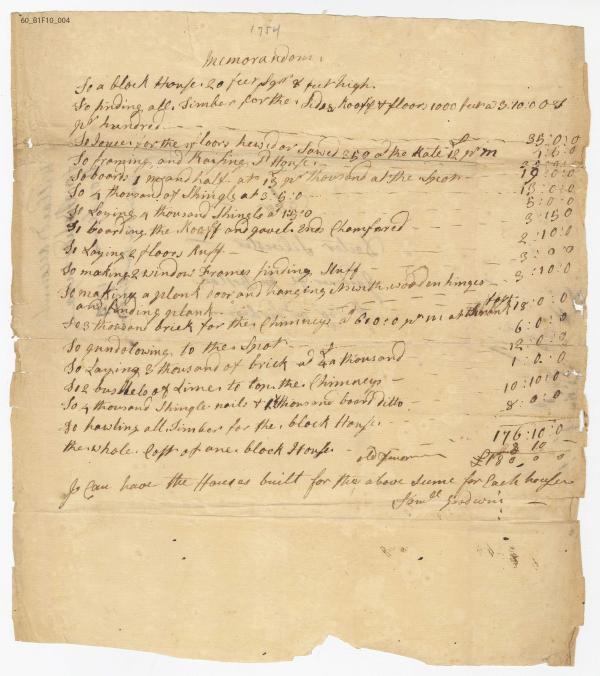 60_B1F10_004
1754
Memorandom.
To a block House 20 feet Sqr & feet high.
To finding all Timber for the Sides Rooff & floors 1000 feet a 3:10:0
pr hundred — 35:0:0
To for the floors hewed or Sawed 350 at the Rate 12 pr m
To framing and Raising Sd House —
To boards 1 m and half at 13 pr thousand at the Spot — 19:0:0
To 4 thousand of Shingle at 3:5:0 — 13:0:0
To Laying 4 thousand Shingle a — 5:0:0
To boarding the Rooff and gavel Ends Chamfared — 3:15:0
To Laying 2 floors Ruff — 2:10:0
To making 2 window Frames finding Stuff — 3:0:0
To making a plank Door and hanging it with wooden hinges — 3:10:0
and finding plank —
To 3 thousand brick for the Chimneys a 6:0:0 pr m at 18:0:0
To gundolowing to the Spot — 6:0:0
To Laying 3 thousand of brick at £4 a thousand 12:0:0
To 2 bushels of Lime to top the Chimneys — 1:0:0
To 4 thousand Shingle nails & 1 thousand board ditto — 10:10:0
To hawling all Timber for the block House — 8:0:0
176:10:0
the whole Cost of one block House — old Tenor —
I Can have the Houses built for the above Sume for Each house
Samll Goodwin